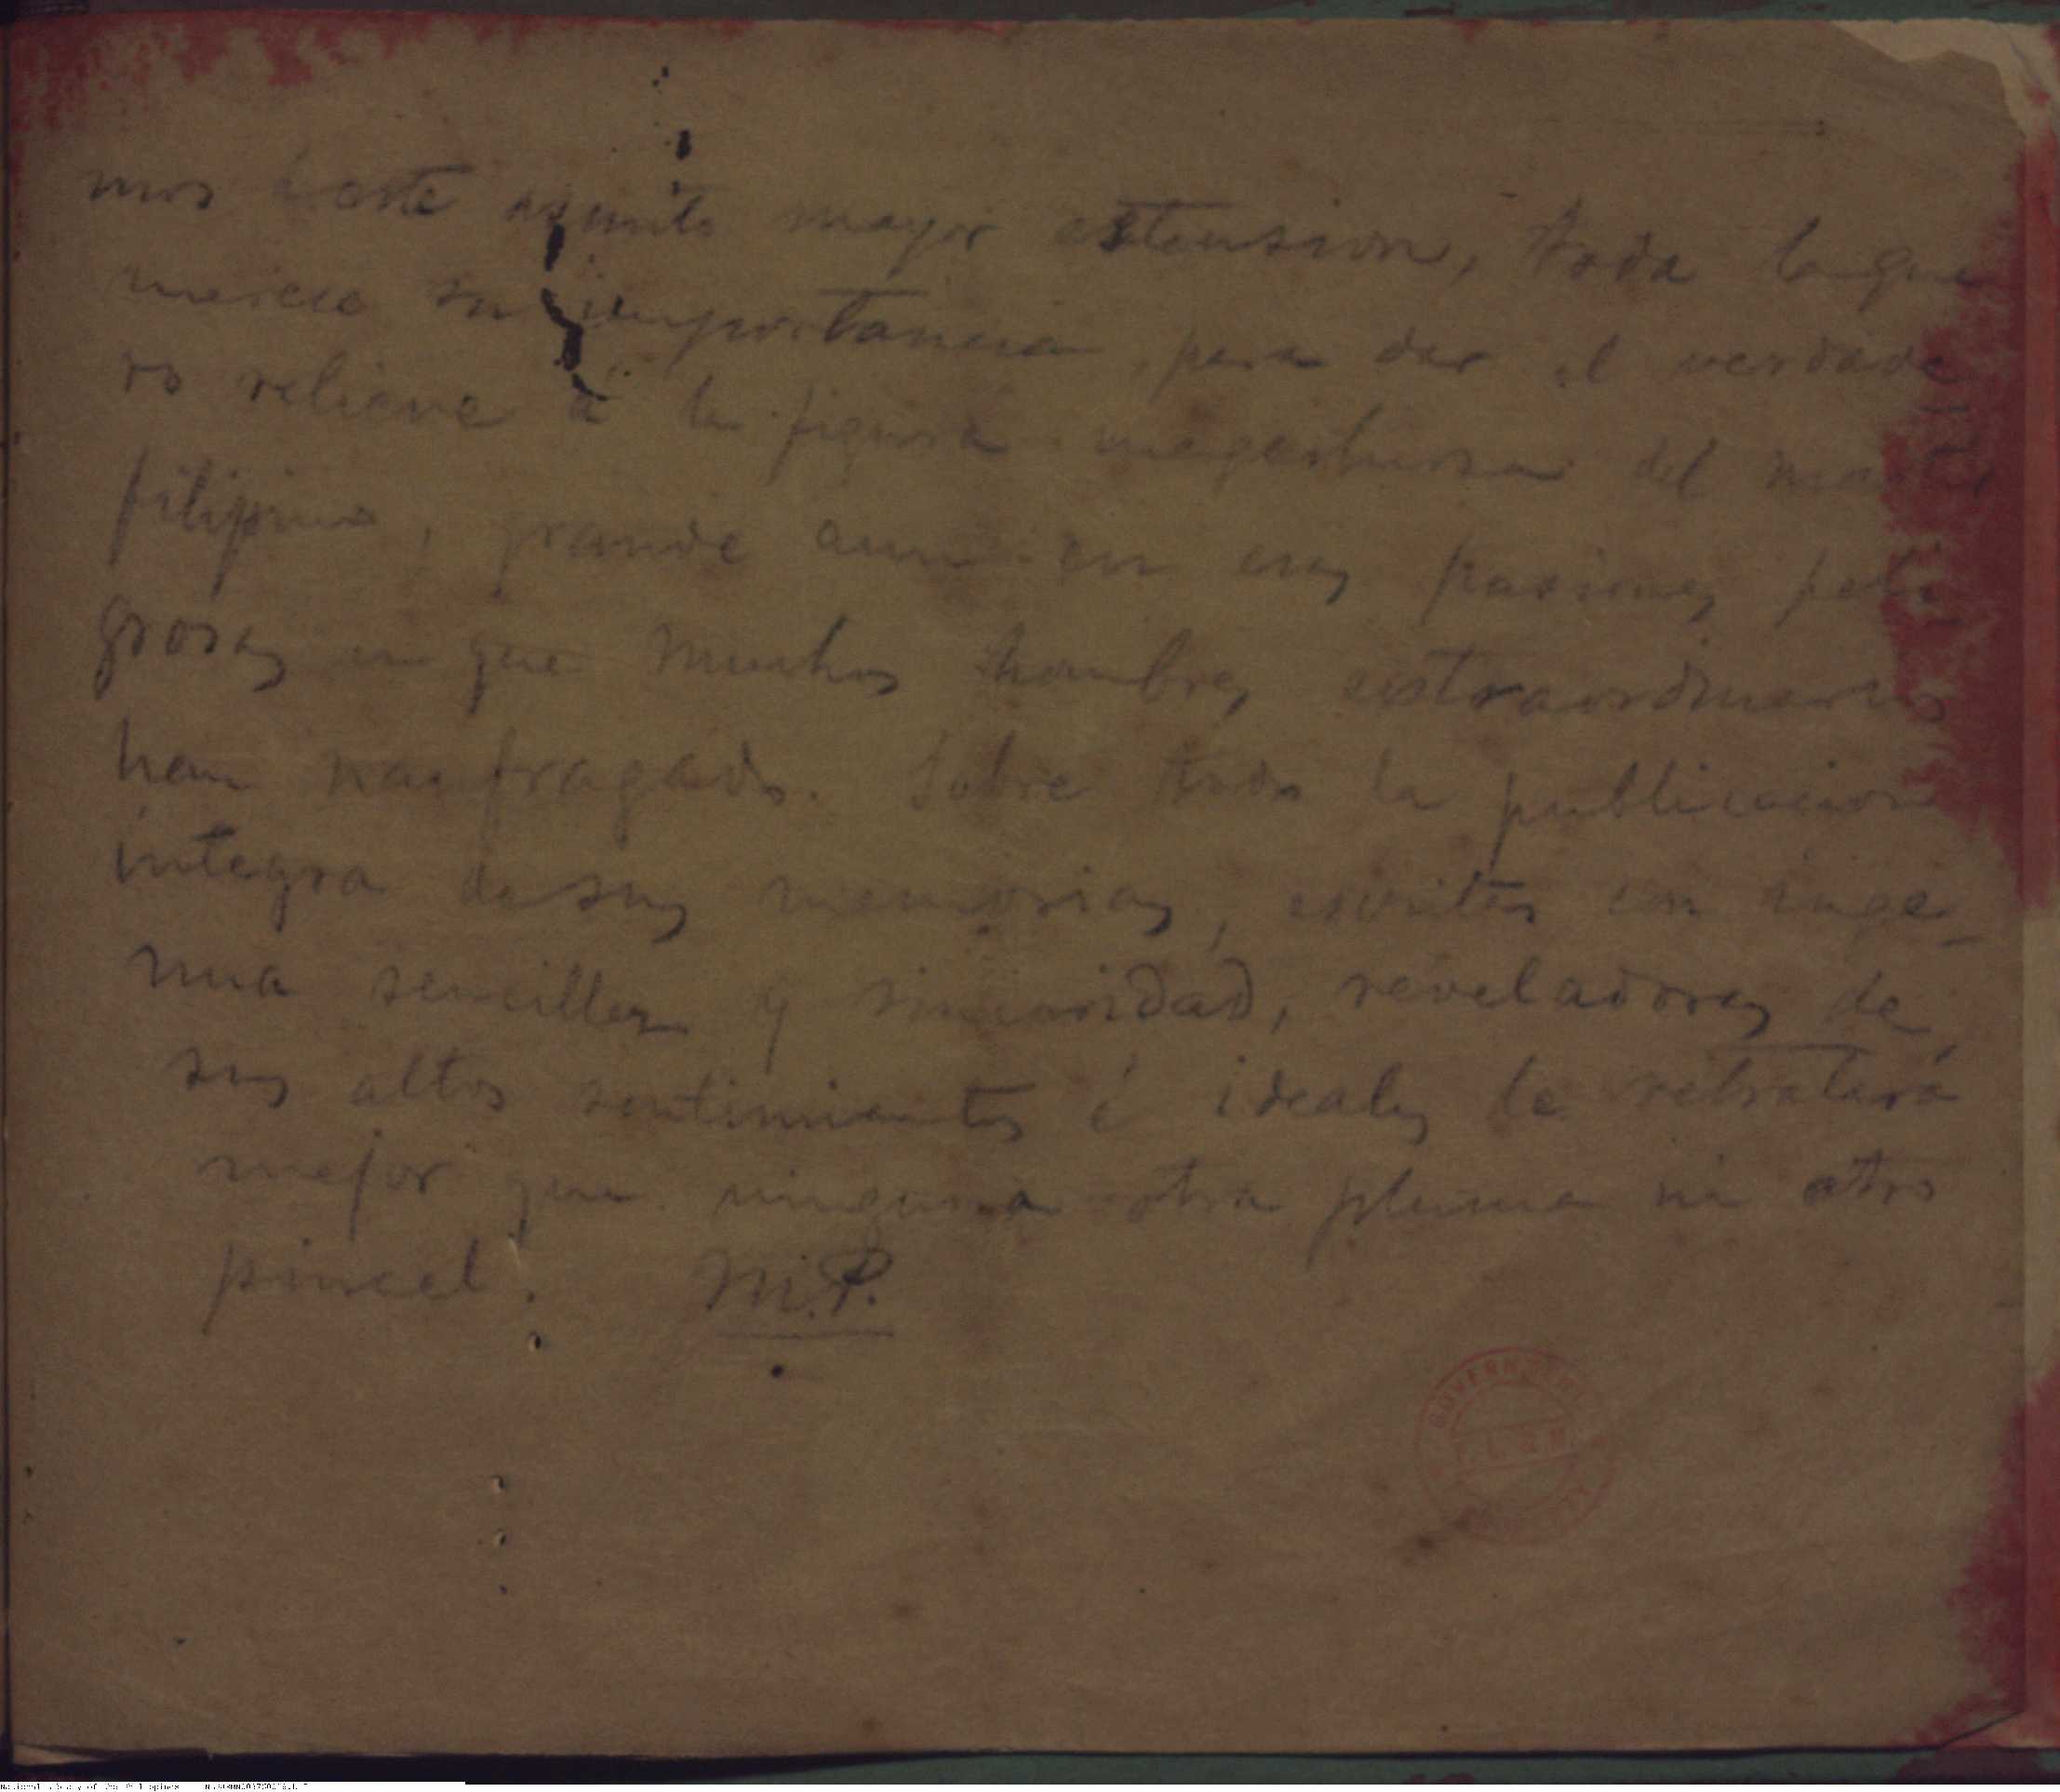 mos á este asunto mayor estension, toda la que
merece su importancia, para dar el verdade
ro relieve á la figura magestuosa del martir
filipino, grande aun en esas pasiones peli
grosas en que muchos hombres estraordinarios
han naufragado. Sobre todo la publicacion
integra de sus memorias, escritas con inge_
nua sencillez y sinceridad, reveladoras de
sus altos sentimientos é ideales le retratará
mejor que ninguna otra pluma ni otro
pincel. M.P.
GOVERNMENT